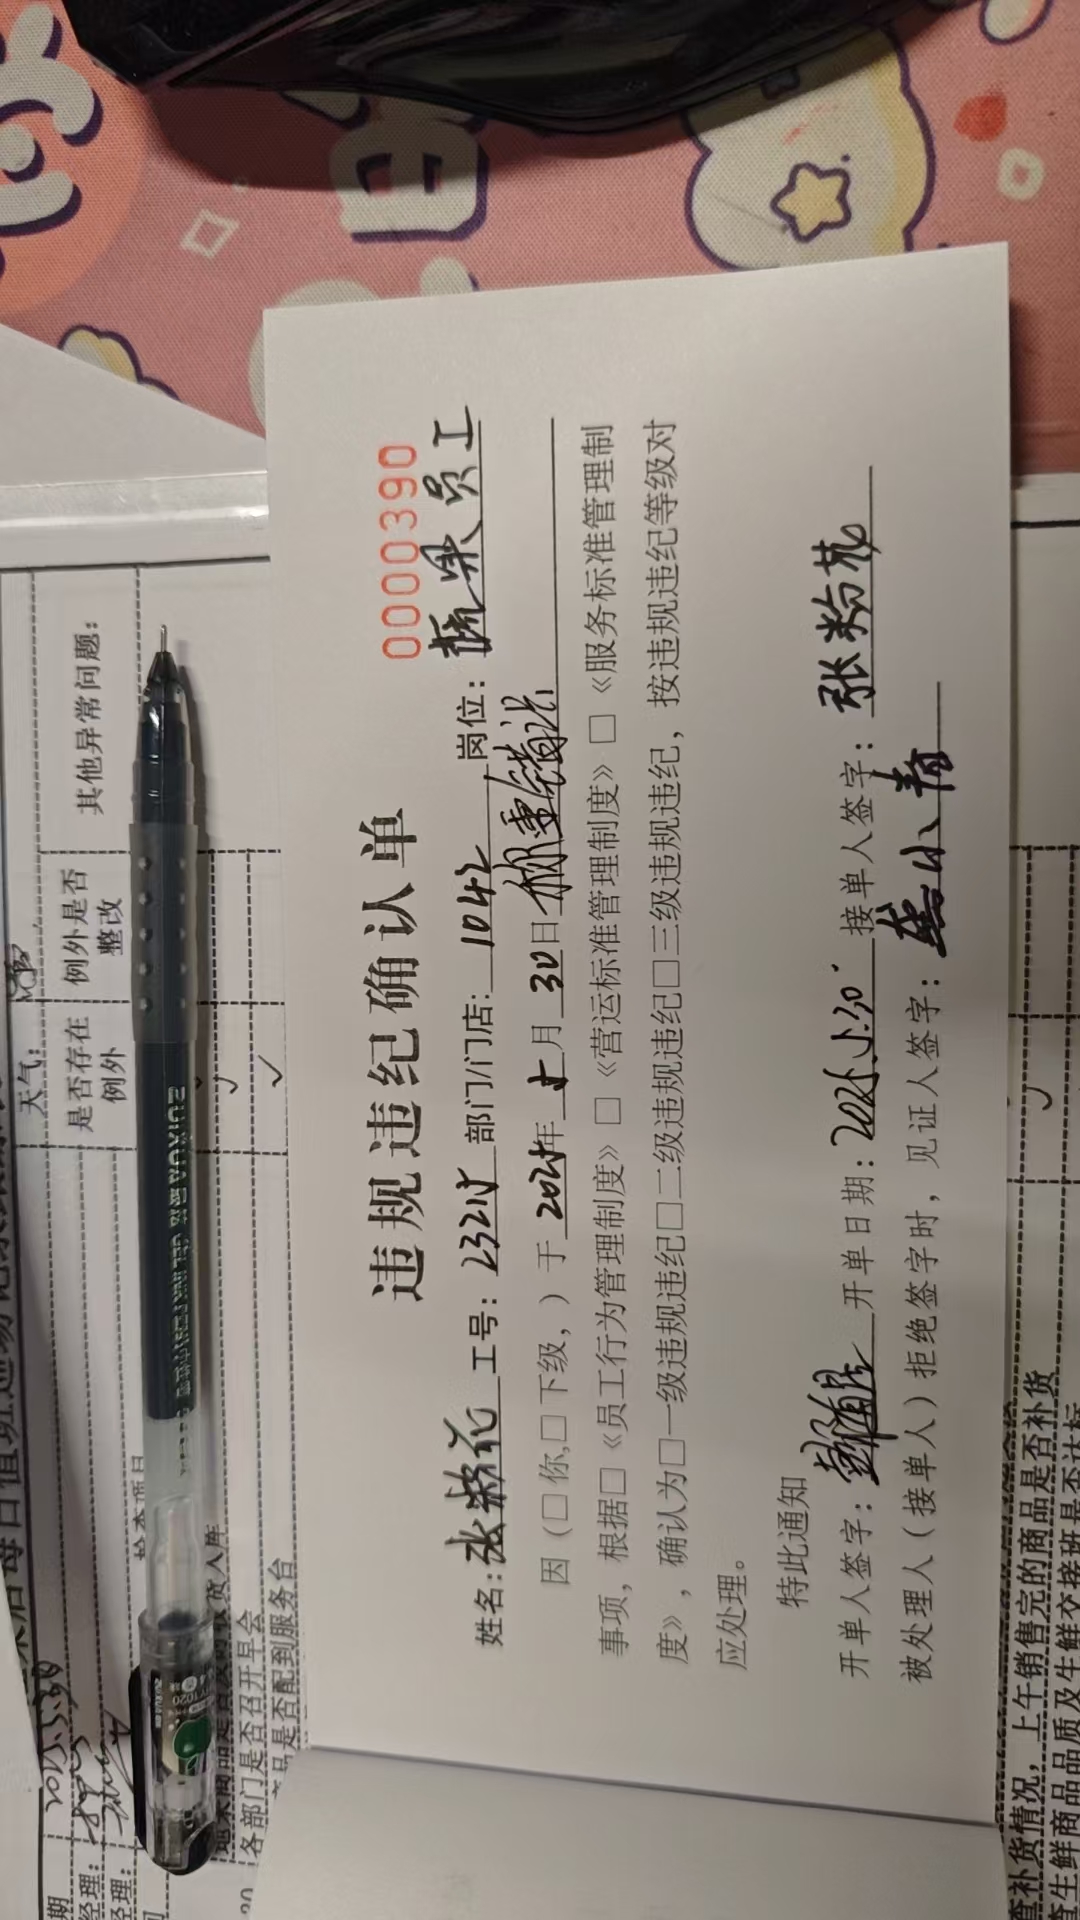 0000390
违规违纪确认单
姓名: 工号: 2325 部门/门店: 1042 岗位: 蔬果员工
因（□你,□下级，）于 2025年 5月 30日 称重错误
事项，根据□《员工行为管理制度》□《营运标准管理制度》□《服务标准管理制
度》，确认为□一级违规违纪□二级违规违纪□三级违规违纪，按违规违纪等级对
应处理。
特此通知
开单人签字: 开单日期: 2025.5.30. 接单人签字: 张粉花
被处理人（接单人）拒绝签字时，见证人签字: 熊小
天气:
是否存在
例外
例外是否
整改
其他异常问题:
各部门是否召开早会
品是否配到服务台
查补货情况，上午销售完的商品是否补货
查生鲜商品品质及生鲜交接班是否达标